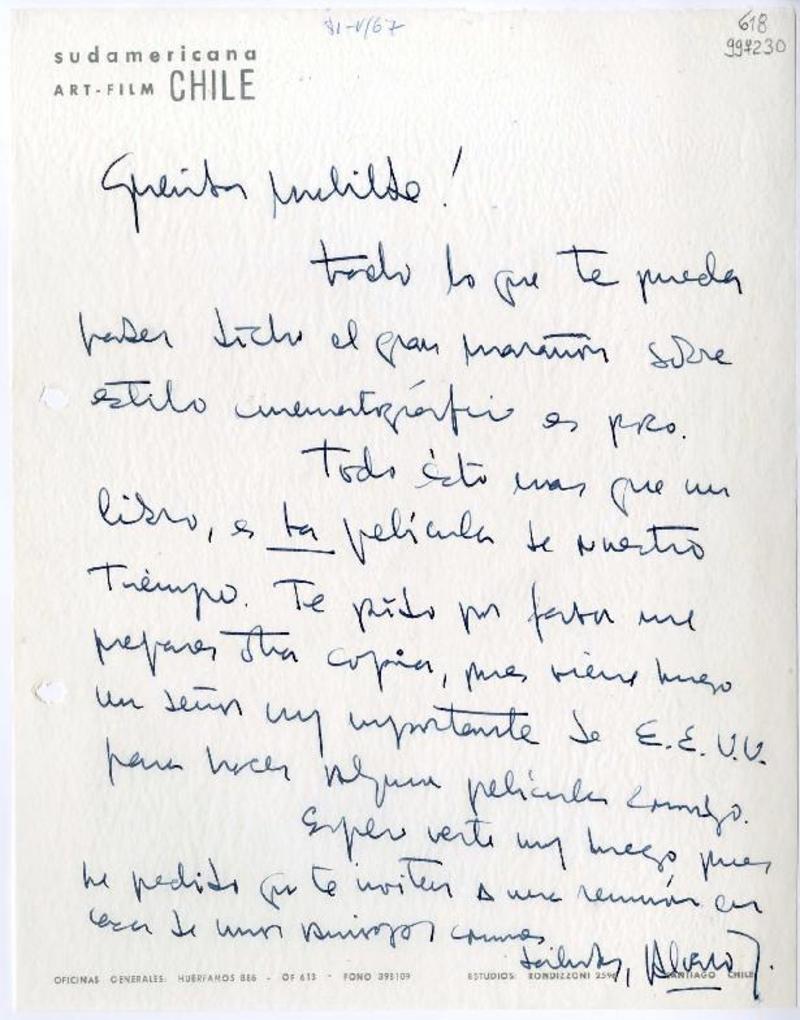 31-V/67
618
997230
sudamericana
ART-FILM CHILE
Querida Matilde!
todo lo que te pueda
haber dicho el gran marañón sobre
estilo cinematográfico es poco.
Todo ésto mas que un
libro, es la película de nuestro
tiempo. Te pido por favor me
prepares otra copia, pues viene luego
un señor muy importante de E.E.U.U.
para hacer alguna película conmigo.
Espero verte muy luego pues
he pedido que te inviten a una reunión en
casa de unos amigos comunes
Saludos, Alvaro J.
OFICINAS GENERALES: HUERFANOS 886 - OF 613 - FONO 398109 ESTUDIOS: RONDIZZONI 2596 SANTIAGO CHILE